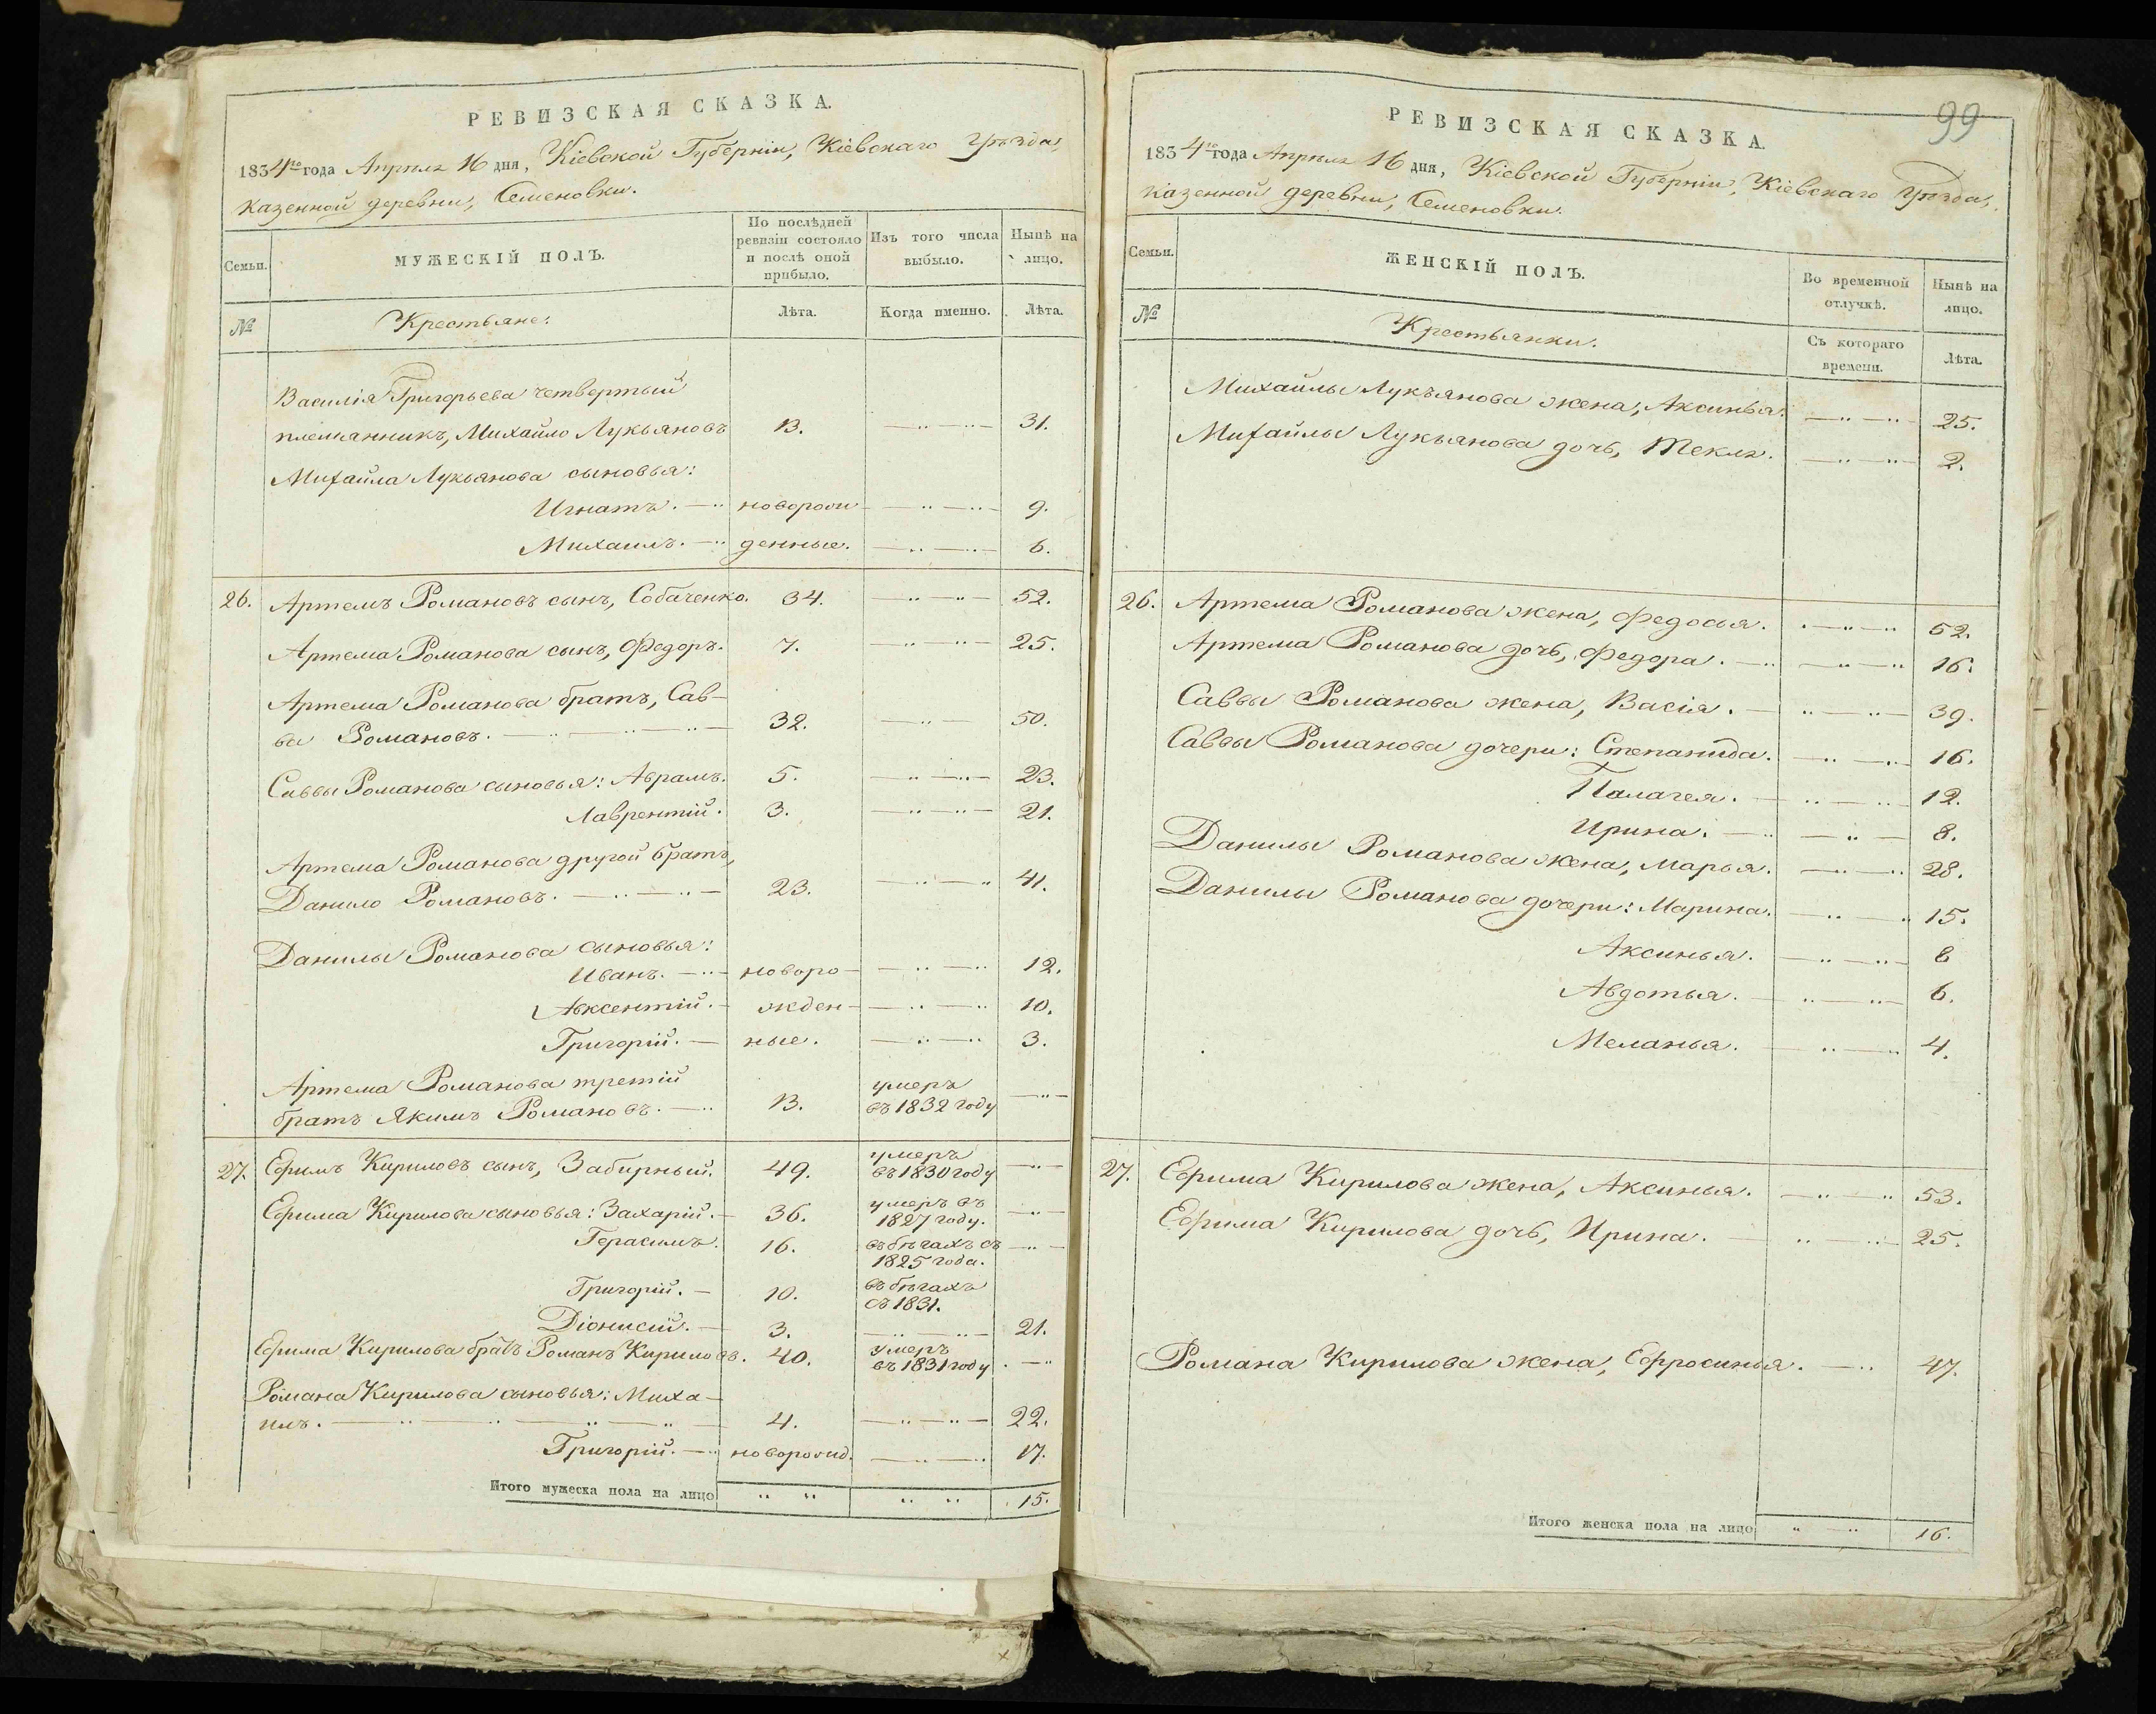 РЕВИЗСКАЯ СКАЗКА.
1834го года Апреля 16 дня, Кіевской Губерніи, Кіевскаго Уѣзда,
казенной деревни, Семеновки.
Семьи.
МУЖЕСКІЙ ПОЛЪ.
По послѣдней ревизіи состояло и послѣ оной прибыло.
Изъ того числа выбыло.
Нынѣ на лицо.
№
Крестьяне:
Лѣта.
Когда именно.
Лѣта.
Василія Григорьева четвертый
племянникъ, Михайло Лукьяновъ 13. 31.
Михайла Лукьянова сыновья:
Игнатъ. новорож 9.
Михаилъ. денные. 6.
26. Артемъ Романовъ сынъ, Собаченко. 34. 52.
Артема Романова сынъ, Федоръ. 7. 25.
Артема Романова братъ, Сав-
ва Романовъ. 32. 50.
Саввы Романова сыновья: Аврамъ. 5. 23.
Лаврентій. 3. 21.
Артема Романова другой братъ,
Данило Романовъ. 23. 41.
Данилы Романова сыновья:
Иванъ. новоро- 12.
Авксентій. жден- 10.
Григорій. ные. 3.
Артема Романова третій
братъ Якимъ Романовъ. 13. умеръ въ 1832 году
27. Ефимъ Кириловъ сынъ, Забирный. 49. умеръ въ 1830 году
Ефима Кирилова сыновья: Захарій. 36. умеръ въ 1827 году.
Герасимъ. 16. въ бѣгахъ съ 1825 года.
Григорій. 10. въ бѣгахъ съ 1831.
Діонисій. 3. 21.
Ефима Кирилова братъ Романъ Кириловъ. 40. умеръ въ 1831 году
Романа Кирилова сыновья: Миха-
илъ. 4. 22.
Григорій. новорожд. 17.
Итого мужеска пола на лицо 15.
99
РЕВИЗСКАЯ СКАЗКА.
1834го года Апреля 16 дня, Кіевской Губерніи, Кіевскаго Уѣзда,
казенной деревни, Семеновки.
Семьи.
ЖЕНСКІЙ ПОЛЪ.
Во временной отлучкѣ.
Нынѣ на лицо.
№
Крестьянки.
Съ котораго времени.
Лѣта.
Михайлы Лукъянова жена, Аксинья. 25.
Михайлы Лукьянова дочь, Текля. 2.
26. Артема Романова жена, Федосья. 52.
Артема Романова дочь, Федора. 16.
Саввы Романова жена, Васія. 39.
Саввы Романова дочери: Степанида. 16.
Палагея. 12.
Ирина. 8.
Данилы Романова жена, Марья. 28.
Данилы Романова дочери: Марина. 15.
Аксинья. 8
Авдотья. 6.
Меланья. 4.
27. Ефима Кирилова жена, Аксинья. 53.
Ефима Кирилова дочь, Ирина. 25.
Романа Кирилова жена, Ефросинья. 47.
Итого женска пола на лицо 16.